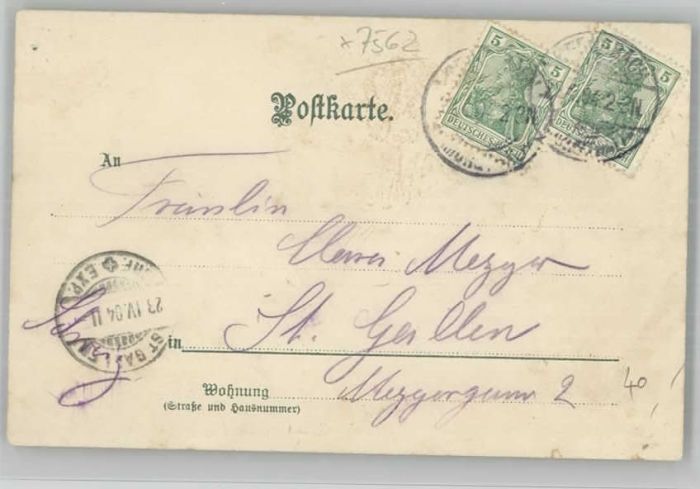 x7562
5 5
5 5
DEUTSCHES REICH
DEUTSCHES REICH
Postkarte.
An
Fräulein
Clara Mezger
St. Gallen
in
Wohnung
(Straße und Hausnummer)
23.IV.04.11
ST GALLEN
EXP.
2
40,